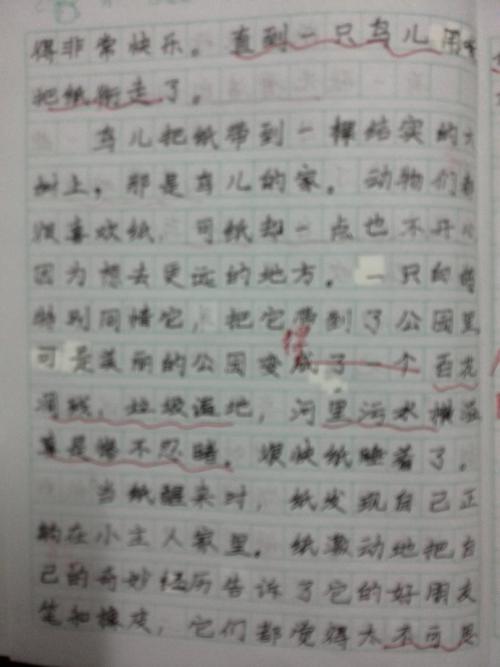 得非常快乐。直到一只鸟儿用嘴
把纸衔走了。
鸟儿把纸带到一棵结实的大
树上，那是鸟儿的家。动物们都
很喜欢纸，可纸却一点也不开心
因为想去更远的地方。一只白鸽
特别同情它，把它带到了公园里
可是美丽的公园变成了一个百花
凋残，垃圾遍地，河里污水横溢
真是惨不忍睹。很快纸睡着了。
当纸醒来时，纸发现自己正
躺在小主人家里。纸激动地把自
己的奇妙经历告诉了它的好朋友
笔和橡皮，它们都觉得太不可思